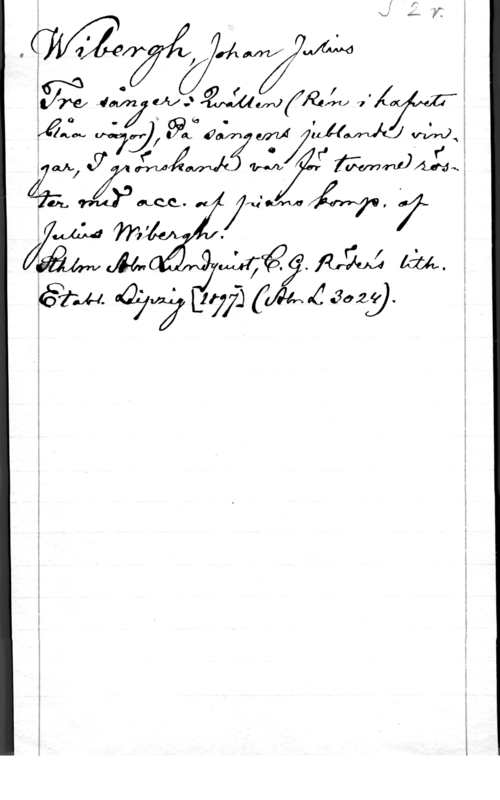 S 2 v.
Wibergh, Johan Julius
Tre sånger: Qvällen (Ren i hafvets
blåa vågor), På sångens jublande vin-
gar, I grönskande vår för tvenne rös-
ter med acc. af piano komp. af
Julius Wibergh.
Sthlm Abr. Lundquist, C. G. Röder's lith.
Etabl. Leipzig [1897] (Abr. L. 3024).